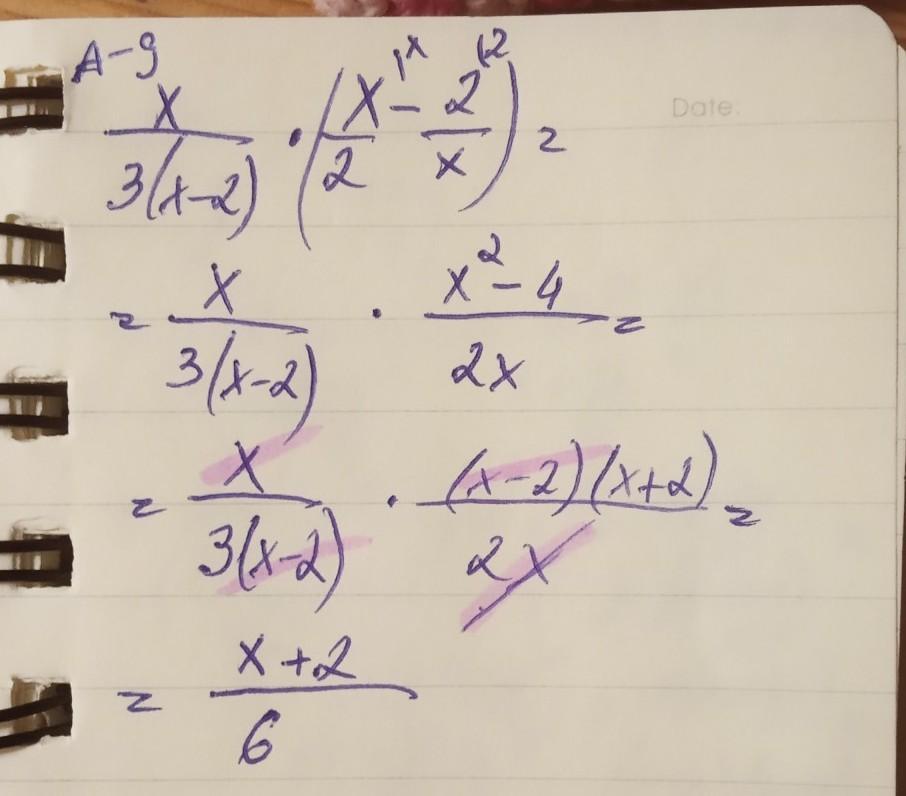 A-9
Date:
x/3(x-2) · (x/2 |x - 2/x |2) =
= x/3(x-2) · x²-4/2x =
= x/3(x-2) · (x-2)(x+2)/2x =
= x+2/6